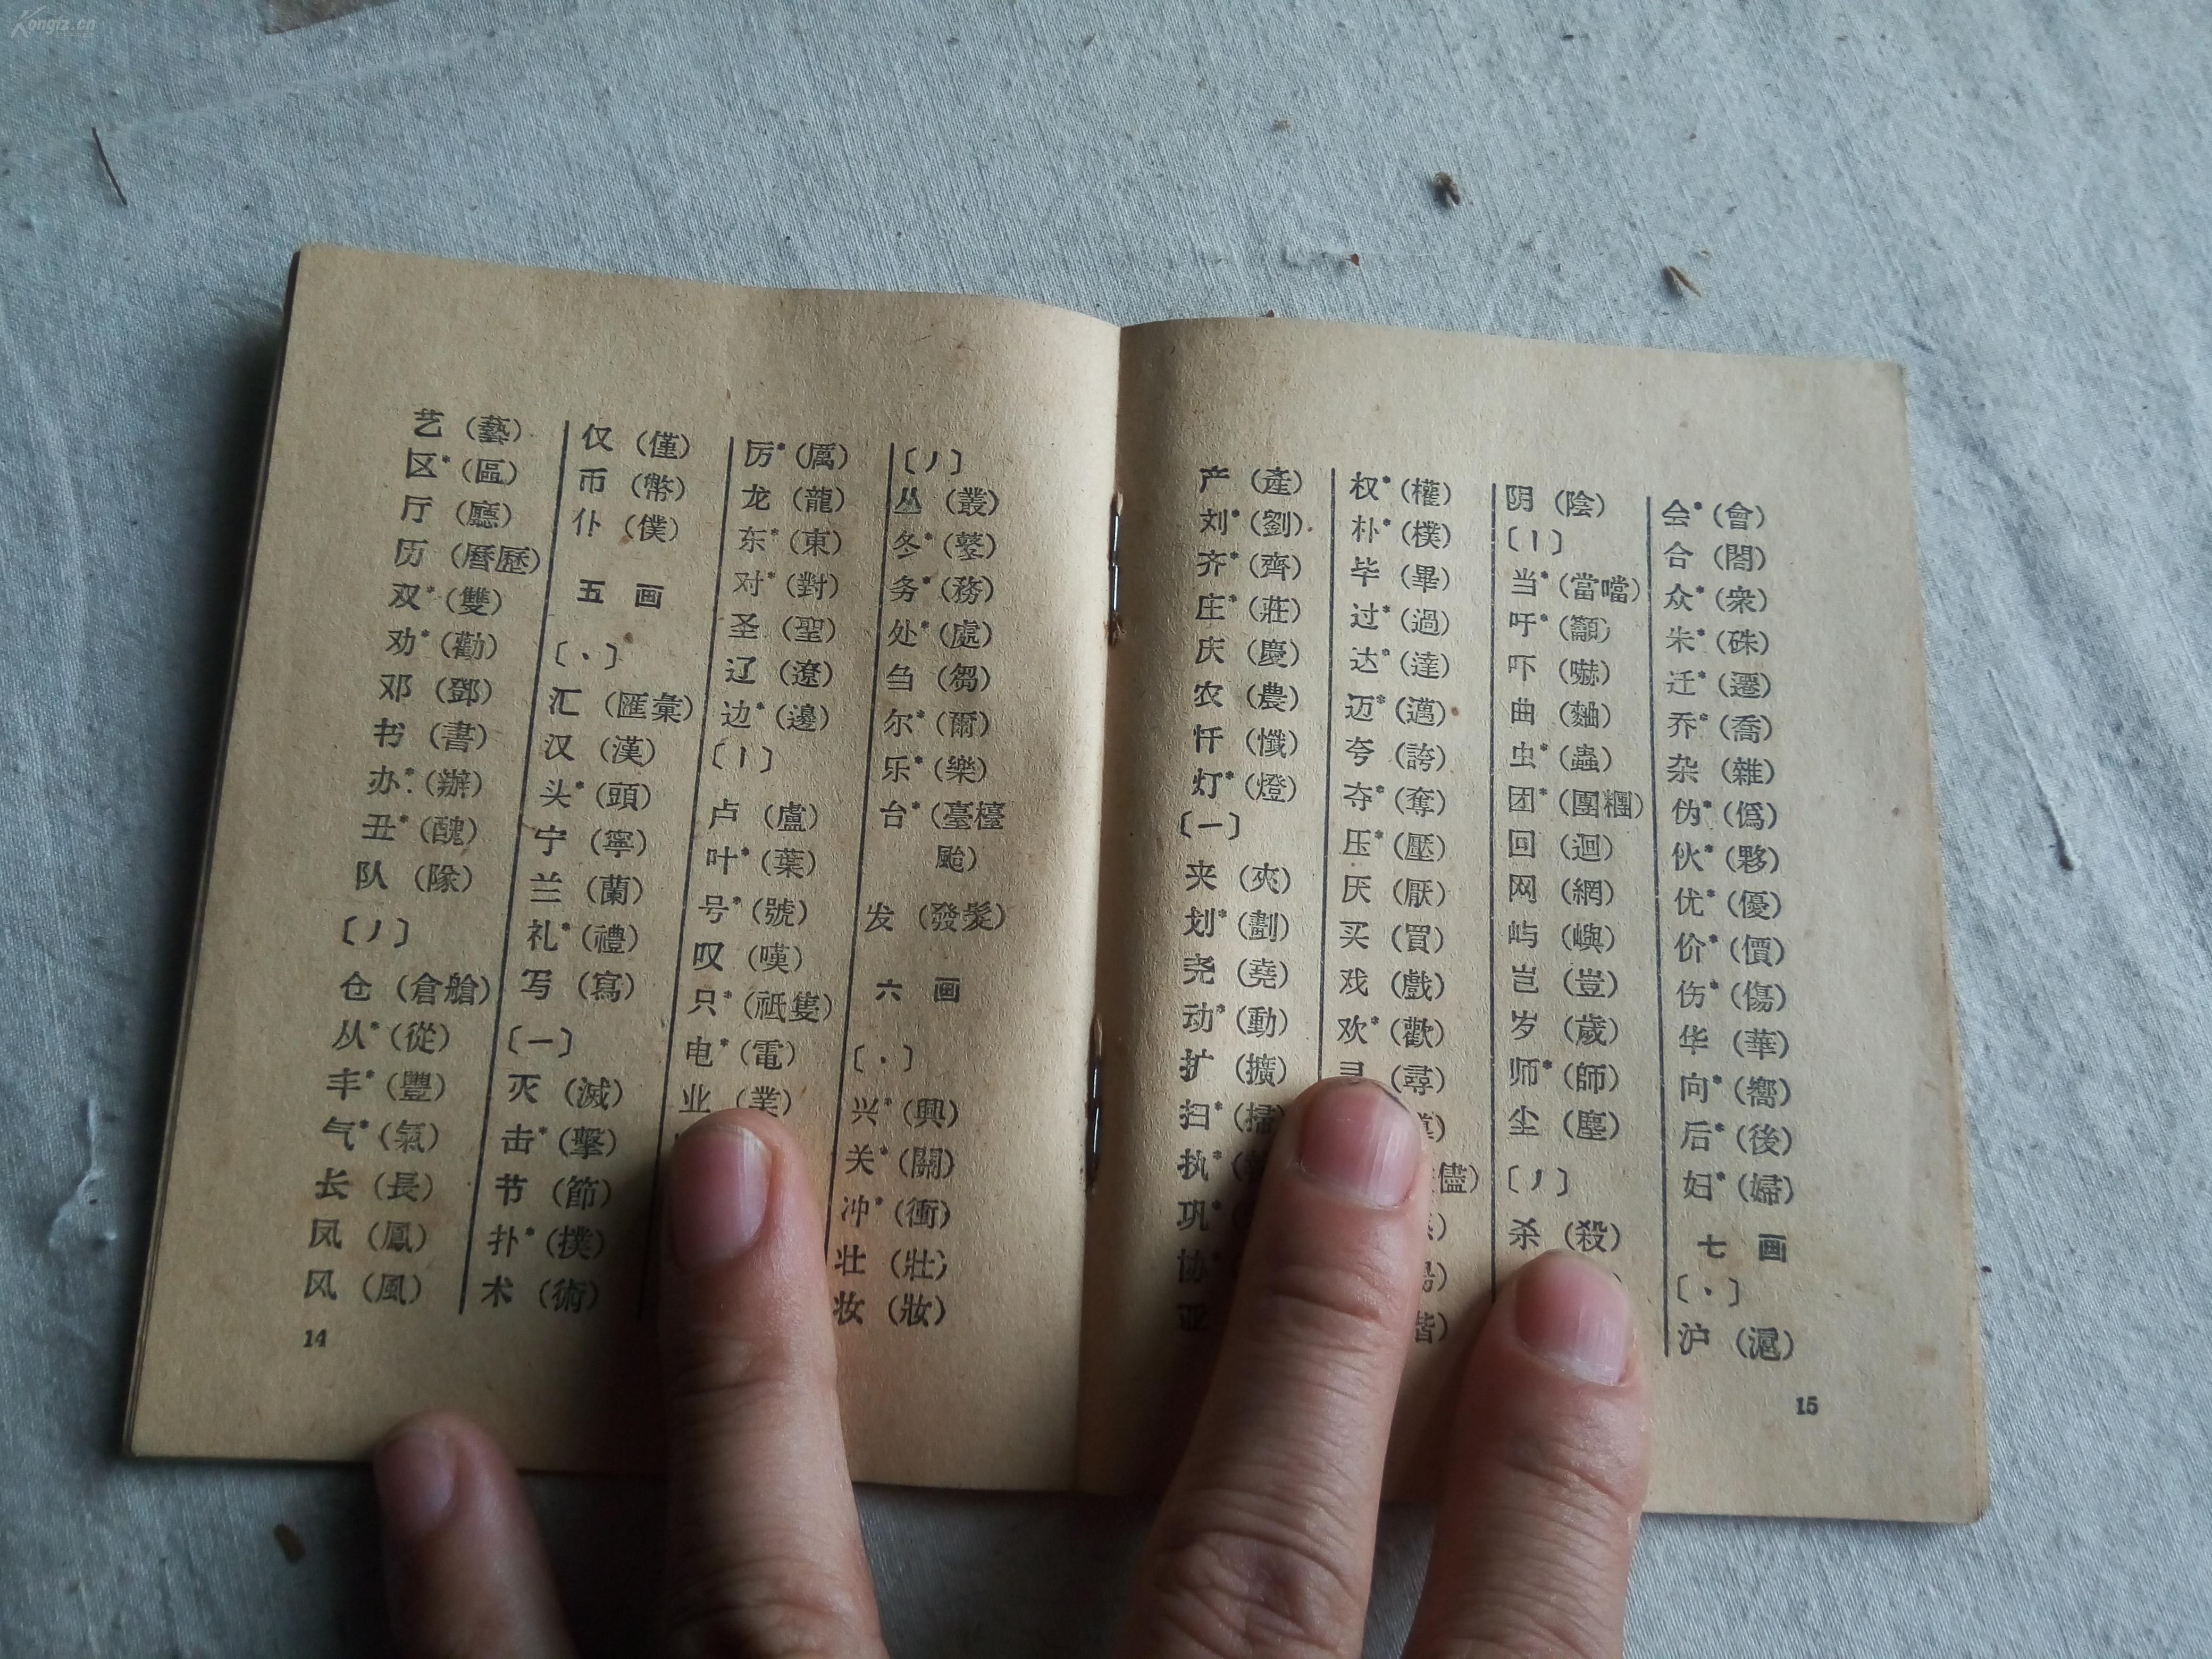 Kongfz.cn
艺 (藝)
区* (區)
厅 (廳)
历 (曆歷)
双* (雙)
劝* (勸)
邓 (鄧)
书 (書)
办* (辦)
丑* (醜)
队 (隊)
〔丿〕
仓 (倉艙)
从* (從)
丰* (豐)
气* (氣)
长 (長)
凤 (鳳)
风 (風)
仅 (僅)
币 (幣)
仆 (僕)
五 画
〔·〕
汇 (匯彙)
汉 (漢)
头* (頭)
宁 (寧)
兰 (蘭)
礼* (禮)
写 (寫)
〔一〕
灭 (滅)
击* (擊)
节 (節)
扑* (撲)
术 (術)
厉* (厲)
龙 (龍)
东* (東)
对* (對)
圣 (聖)
辽 (遼)
边* (邊)
〔丨〕
卢 (盧)
叶* (葉)
号* (號)
叹 (嘆)
只* (祇隻)
电* (電)
业 (業)
〔丿〕
丛 (叢)
冬* (鼕)
务* (務)
处* (處)
刍 (芻)
尔* (爾)
乐* (樂)
台* (臺檯
颱)
发 (發髮)
六 画
〔·〕
兴* (興)
关* (關)
冲* (衝)
壮 (壯)
妆 (妝)
14
产 (產)
刘* (劉)
齐* (齊)
庄* (莊)
庆 (慶)
农 (農)
忏 (懺)
灯* (燈)
〔一〕
夹 (夾)
划* (劃)
尧 (堯)
动* (動)
扩 (擴)
扫* (掃
执*
巩*
协*
亚
权* (權)
朴* (樸)
毕 (畢)
过* (過)
达* (達)
迈* (邁)
夸 (誇)
夺* (奪)
压* (壓)
厌 (厭)
买 (買)
戏 (戲)
欢* (歡)
(尋)
儘)
阴 (陰)
〔丨〕
当* (當噹)
吁* (籲)
吓 (嚇)
曲 (麯)
虫* (蟲)
团* (團糰)
回 (迴)
网 (網)
屿 (嶼)
岂 (豈)
岁 (歲)
师* (師)
尘 (塵)
〔丿〕
杀 (殺)
会* (會)
合 (閤)
众* (衆)
朱* (硃)
迁* (遷)
乔* (喬)
杂 (雜)
伪* (僞)
伙* (夥)
优* (優)
价* (價)
伤* (傷)
华 (華)
向* (嚮)
后* (後)
妇* (婦)
七 画
〔·〕
沪 (滬)
15